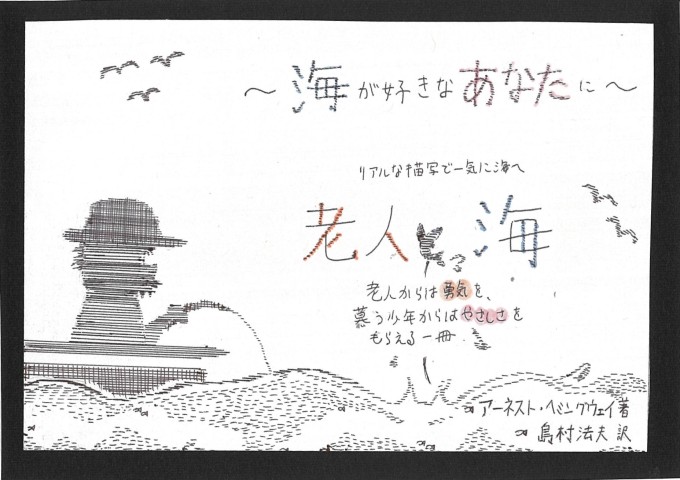 ～海が好きなあなたに～
リアルな描写で一気に海へ
老人と海
老人からは勇気を、
慕う少年からはやさしさを
もらえる一冊
アーネスト・ヘミングウェイ著
島村法夫訳